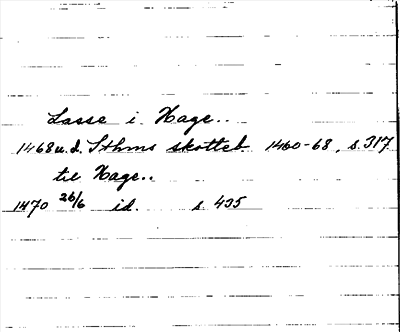 Lasse i Hage..
1468 u.d. Sthms skotteb. 1460-68, s. 317
til Hage..
1470 26/6 id. s. 435